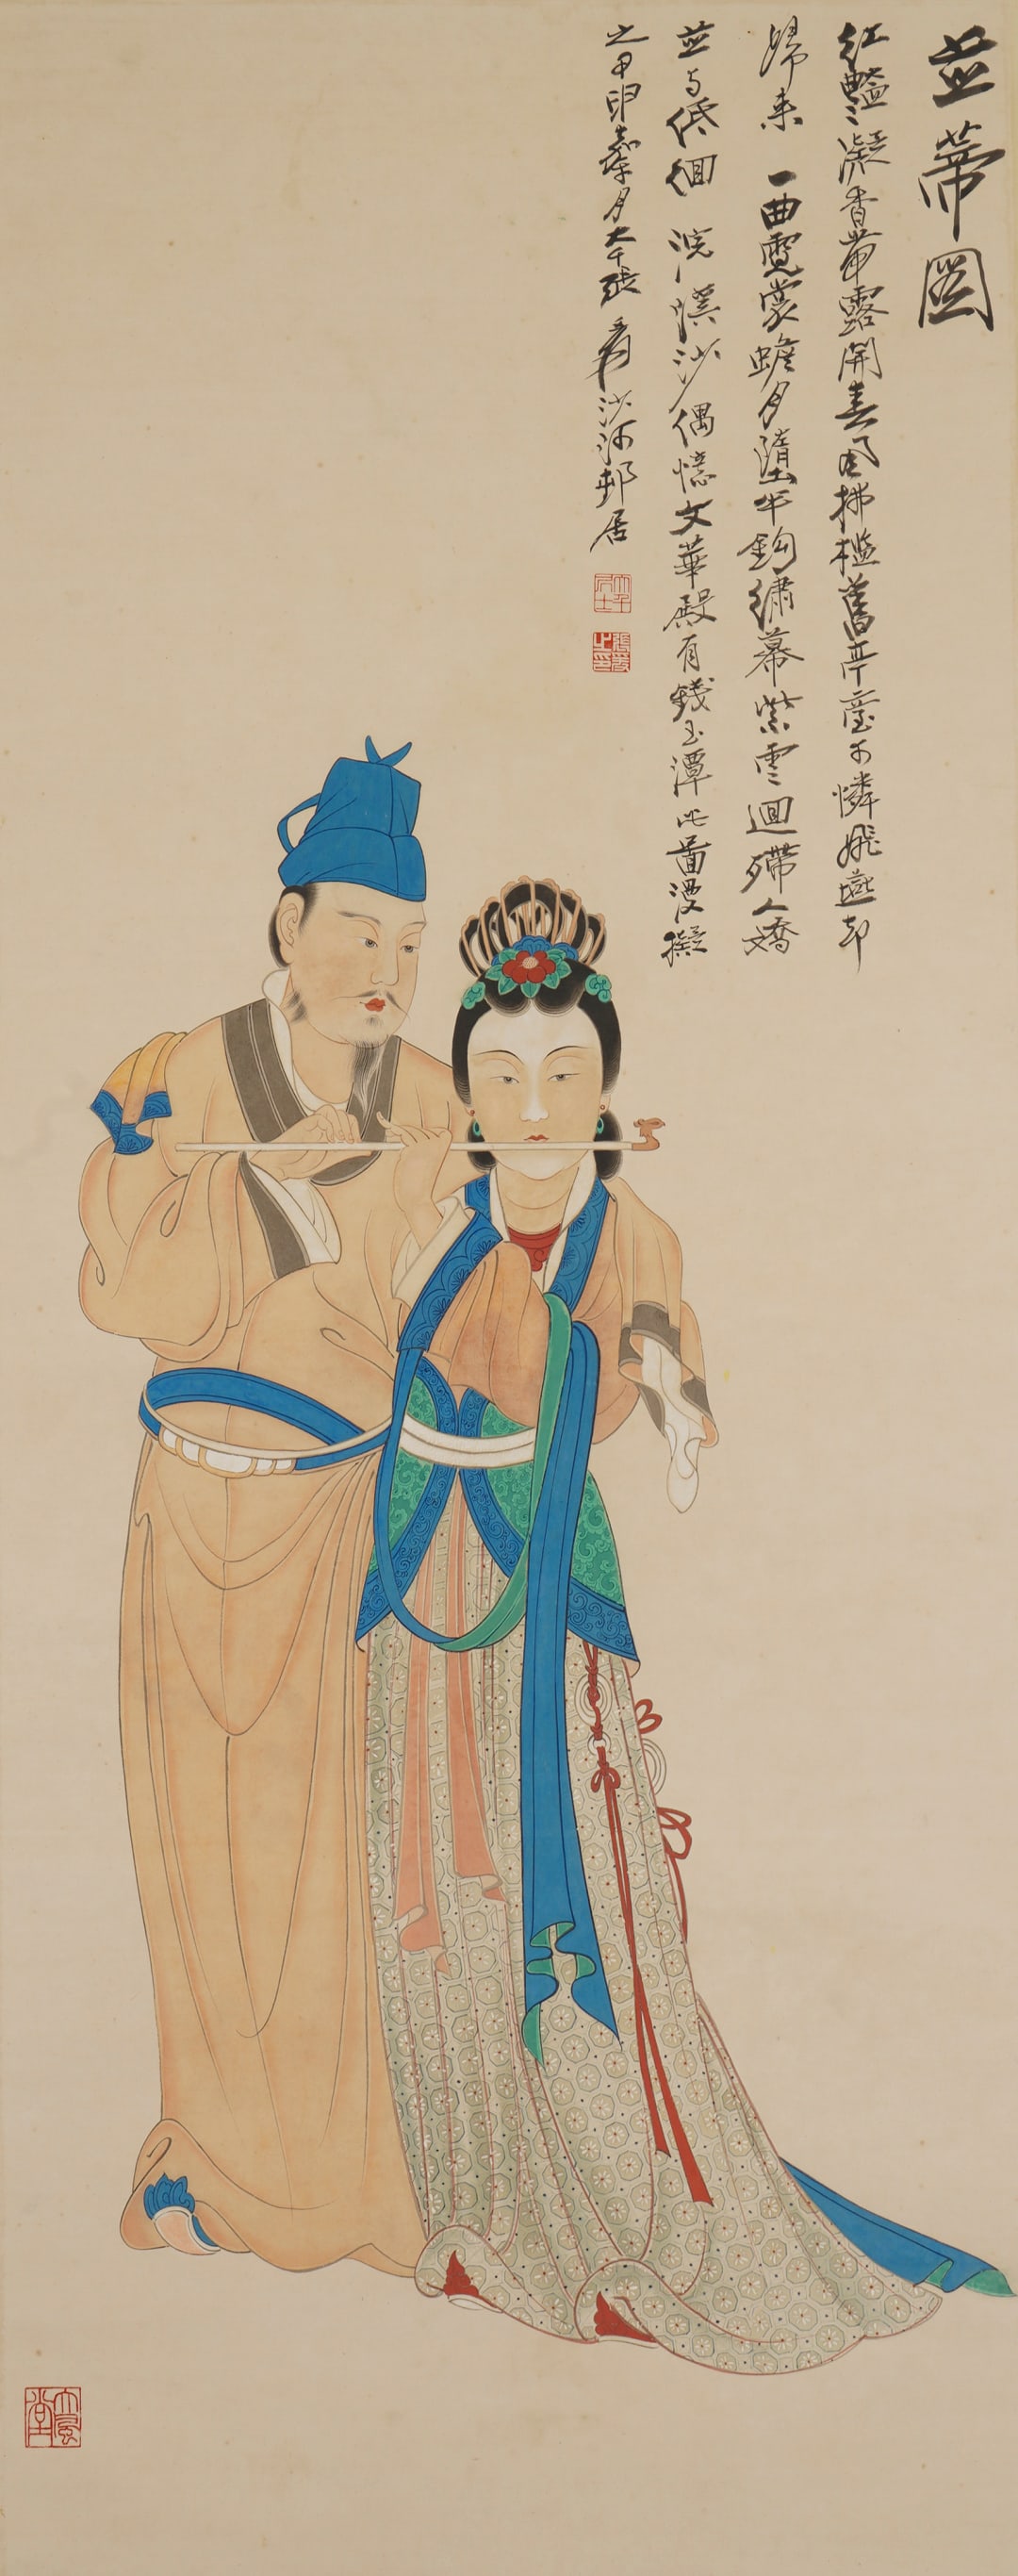 並蒂圖
紅豔豔凝香帶露開春風拂檻舊亭臺可憐飛燕却
歸來 一曲霓裳蟾月墮半鉤繡幕紫雲迴殢人嬌
並與低徊 浣溪沙偶憶文華殿有錢玉潭此圖漫擬
之甲申嘉平月大千張爰沙河邨居
大千居士
張爰之印
大風堂